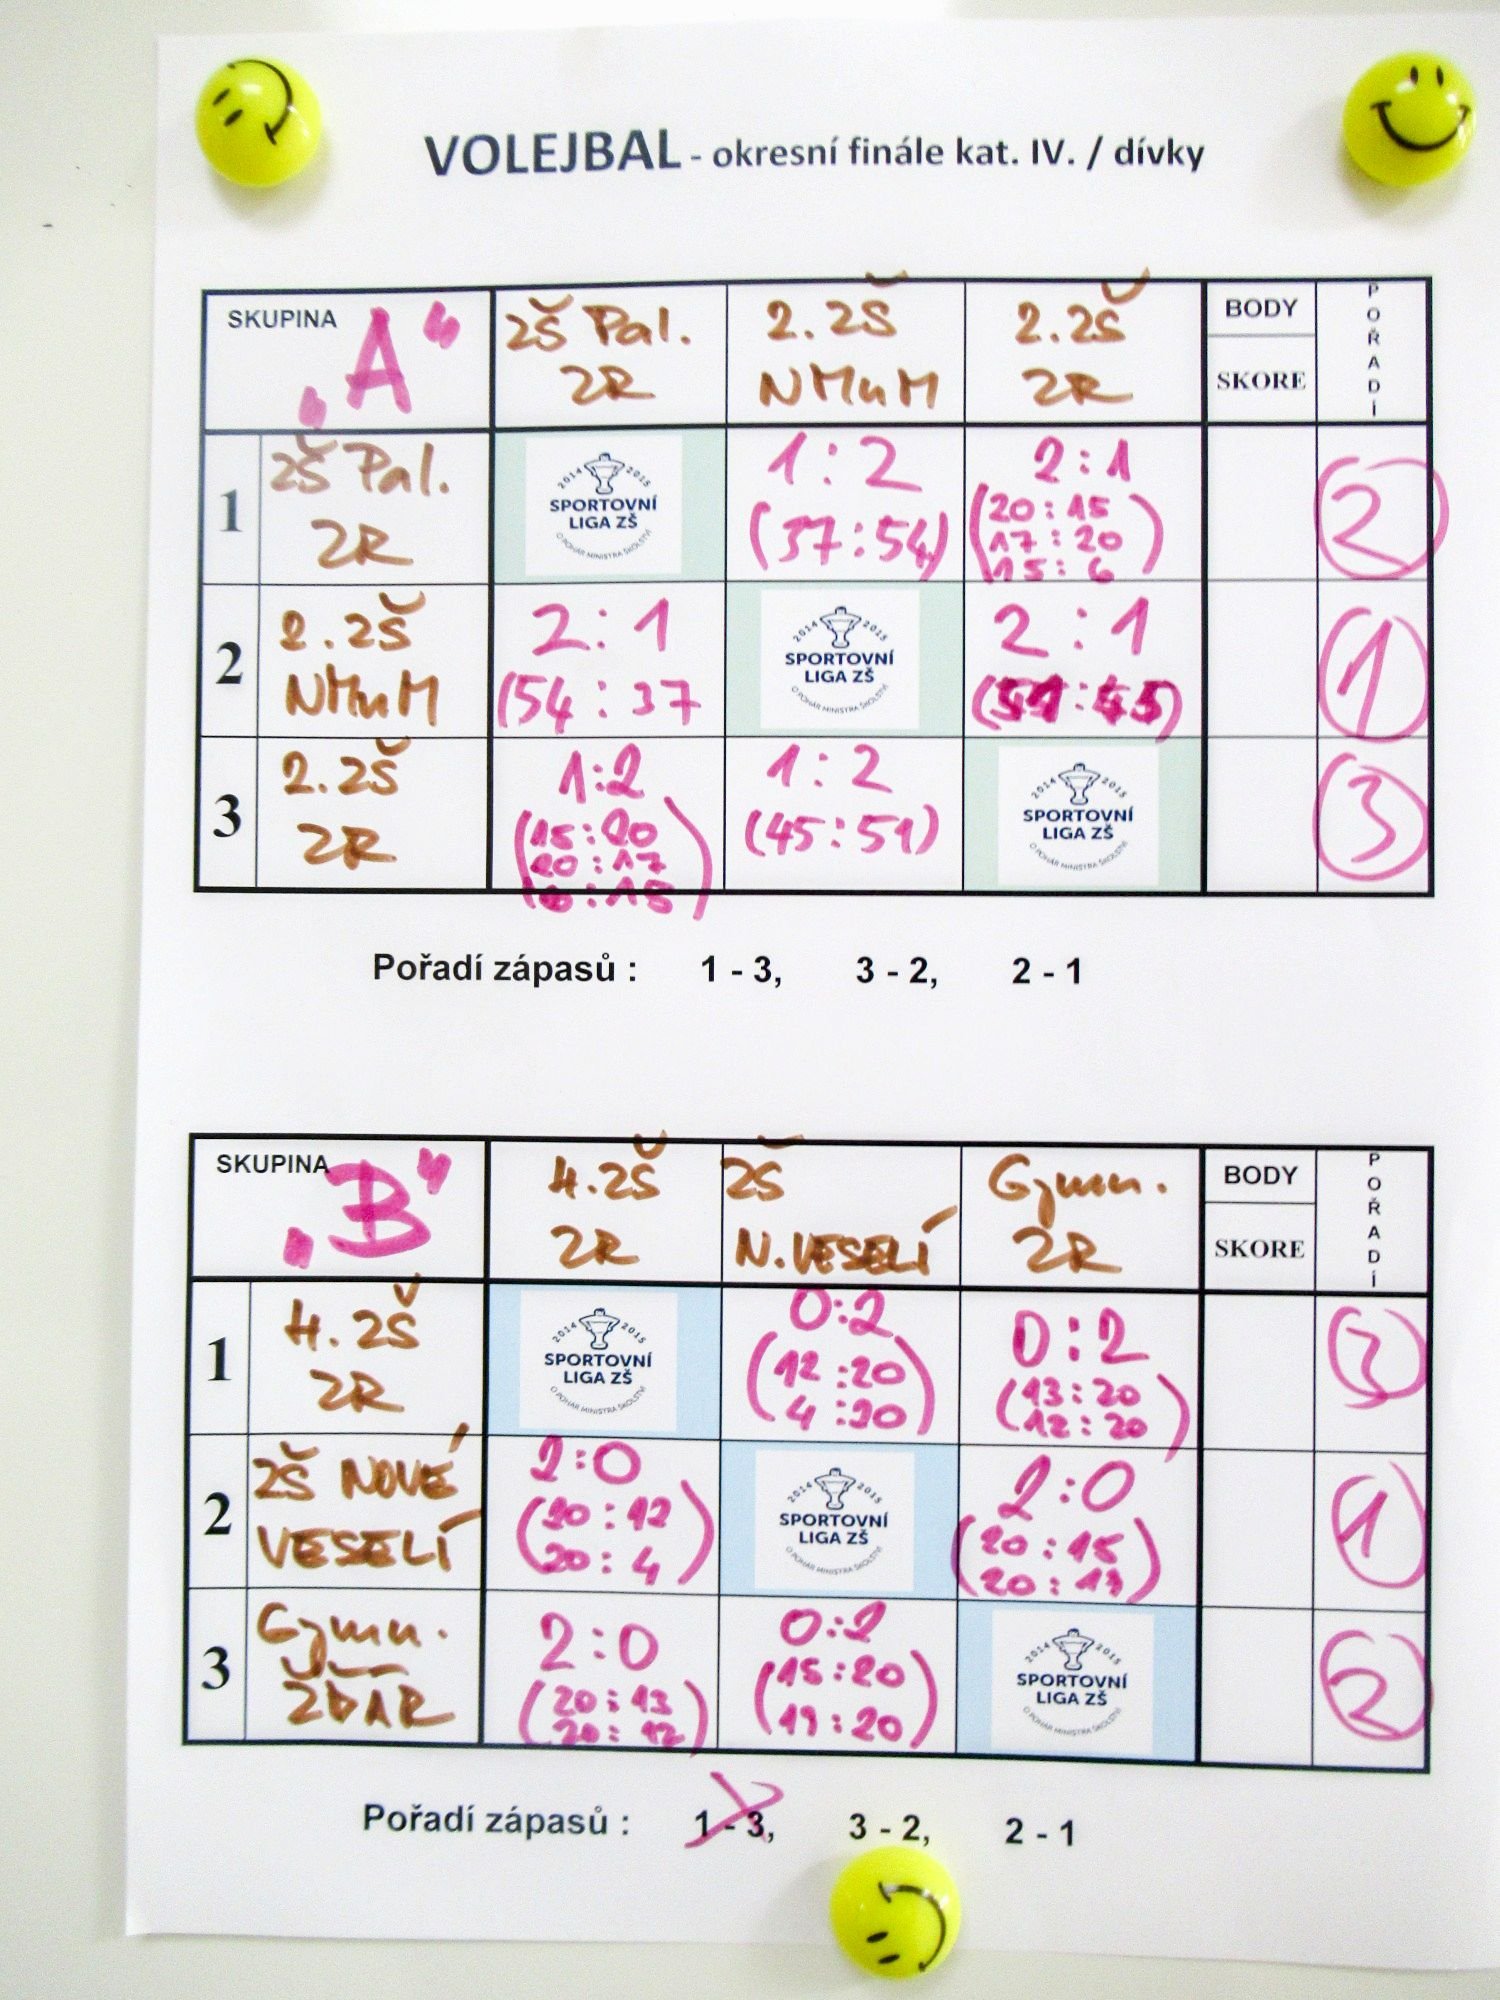 VOLEJBAL - okresní finále kat. IV. / dívky
SKUPINA „A“
ZŠ Pal. ZR
2. ZŠ NMnM
2. ZŠ ZR
BODY
SKORE
POŘADÍ
1
ZŠ Pal. ZR
2014 2015
SPORTOVNÍ
LIGA ZŠ
O POHÁR MINISTRA ŠKOLSTVÍ
1:2
(37:54)
2:1
(20:15
17:20
15:6)
2
2
2. ZŠ NMnM
2:1
(54:37
2014 2015
SPORTOVNÍ
LIGA ZŠ
O POHÁR MINISTRA ŠKOLSTVÍ
2:1
(51:45)
1
3
2. ZŠ ZR
1:2
(15:20
20:17
:15)
1:2
(45:51)
2014 2015
SPORTOVNÍ
LIGA ZŠ
O POHÁR MINISTRA ŠKOLSTVÍ
3
Pořadí zápasů : 1 - 3, 3 - 2, 2 - 1
SKUPINA „B“
4. ZŠ ZR
ZŠ N. VESELÍ
Gymn. ZR
BODY
SKORE
POŘADÍ
1
4. ZŠ ZR
2014 2015
SPORTOVNÍ
LIGA ZŠ
O POHÁR MINISTRA ŠKOLSTVÍ
0:2
(12:20
4:20)
0:2
(13:20
12:20)
3
2
ZŠ NOVÉ
VESELÍ
2:0
(20:12
20:4)
2014 2015
SPORTOVNÍ
LIGA ZŠ
O POHÁR MINISTRA ŠKOLSTVÍ
2:0
(20:15
20:1)
1
3
Gymn.
ŽĎÁR
2:0
(20:13
20:12)
0:2
(15:20
:20)
2014 2015
SPORTOVNÍ
LIGA ZŠ
O POHÁR MINISTRA ŠKOLSTVÍ
2
Pořadí zápasů : 1 - 3, 3 - 2, 2 - 1